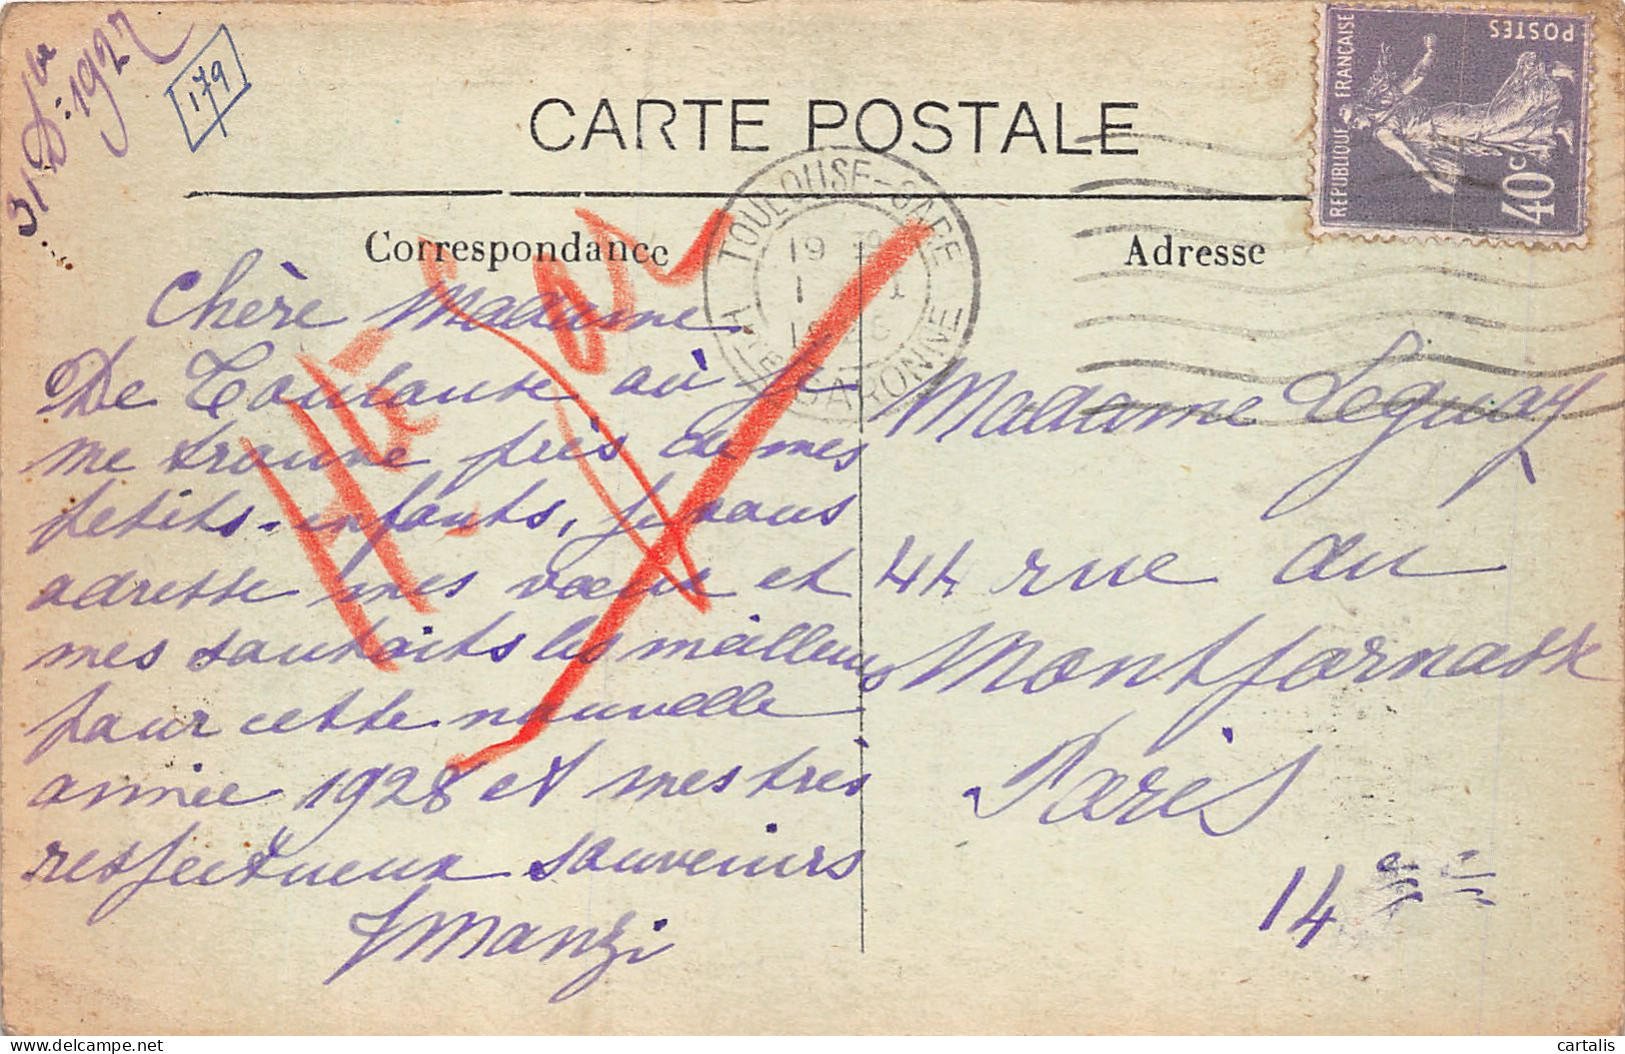 31 Dbre 1927
179
CARTE POSTALE
REPUBLIQUE FRANÇAISE
POSTES
40c
TOULOUSE-GARE
HTE GARONNE
Correspondance
Adresse
Chère Madame
De Toulouse où je
me trouve près de mes
petits-enfants, je vous
adresse mes vœux et
mes souhaits les meilleurs
pour cette nouvelle
année 1928 et mes très
respectueux souvenirs
Manzi
Madame Leguay
44 rue du
Montparnasse
Paris
14
Hte-Gar
cartalis
delcampe.net